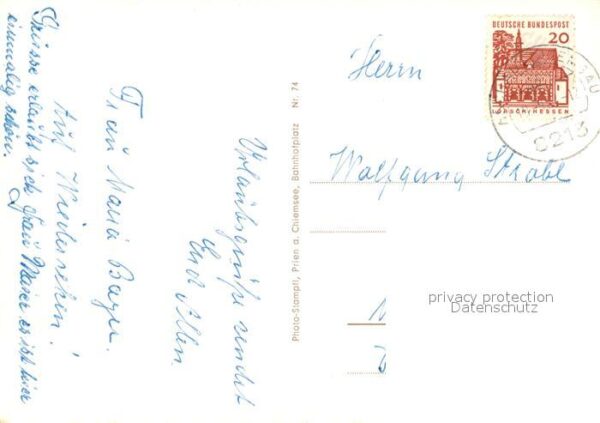 Urlaubsgrüße sendet
Euch Allen
Frau Maria Bayer.
Auf Wiedersehen!
Grüsse erlaubt sich Frau Maier es ist hier
einmalig schön.
Photo-Stampfl, Prien a. Chiemsee, Bahnhofplatz Nr. 74
DEUTSCHE BUNDESPOST
20
LORSCH/HESSEN
8213
Herrn
Wolfgang Strobl
privacy protection
Datenschutz